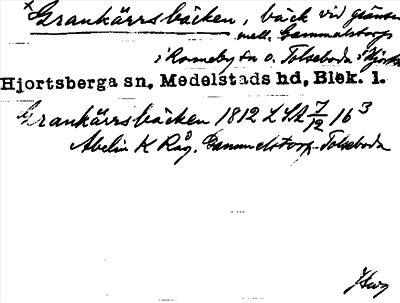 × Grankärrsbäcken, bäck vid gränsen
mell. Gammalstorp
i Ronneby sn o. Tolseboda i Hjorts
Hjortsberga sn, Medelstads hd, Blek. l.
Grankärrsbäcken 1812 LSA 7/12 16 3
Abelin K Råg. Gammelstorp-Tolseboda